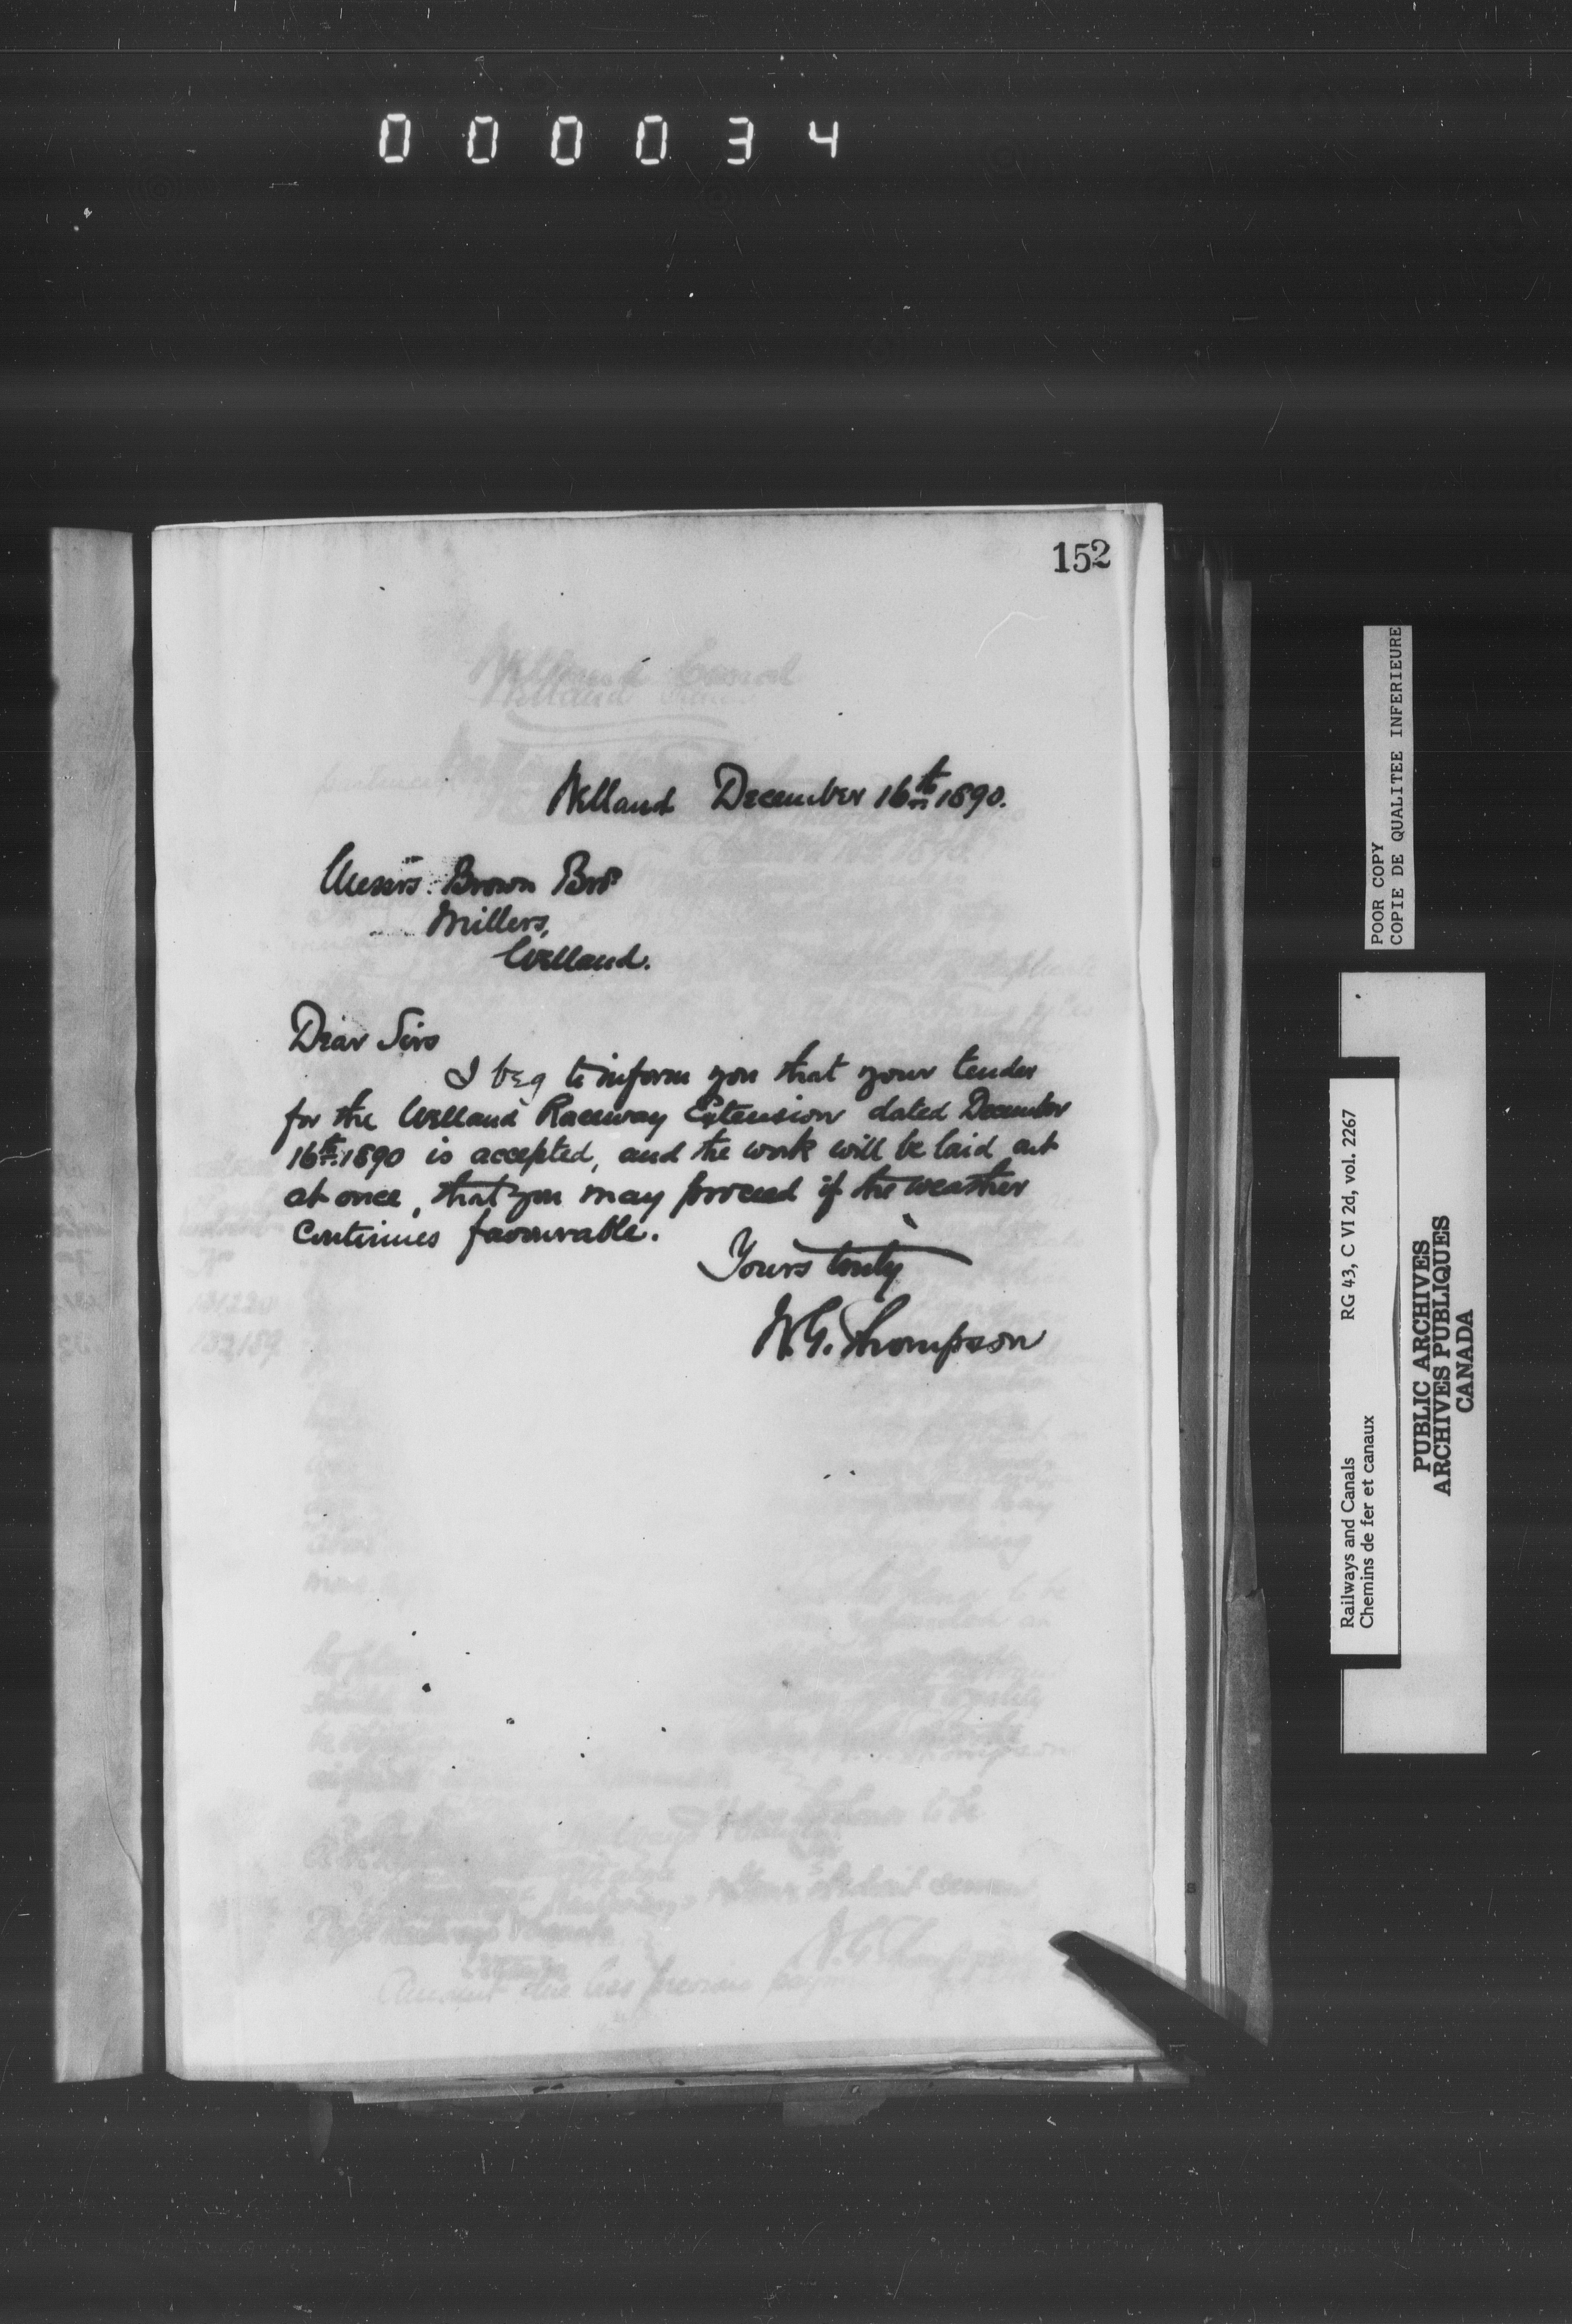 000034
152
Welland December 16th 1890.
Messrs. Brown Bros
Millers,
Welland.
Dear Sirs
I beg to inform you that your tender
for the Welland Raceway Extension dated December
16th 1890 is accepted, and the work will be laid out
at once, that you may proceed if the weather
continues favourable.
Yours truly
W.G. Thompson
POOR COPY
COPIE DE QUALITEE INFERIEURE
Railways and Canals RG 43, C VI 2d, vol. 2267
Chemins de fer et canaux
PUBLIC ARCHIVES
ARCHIVES PUBLIQUES
CANADA